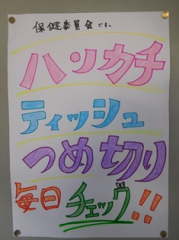 保健委員会です。
ハンカチ
ティッシュ
つめ切り
毎日チェック!!